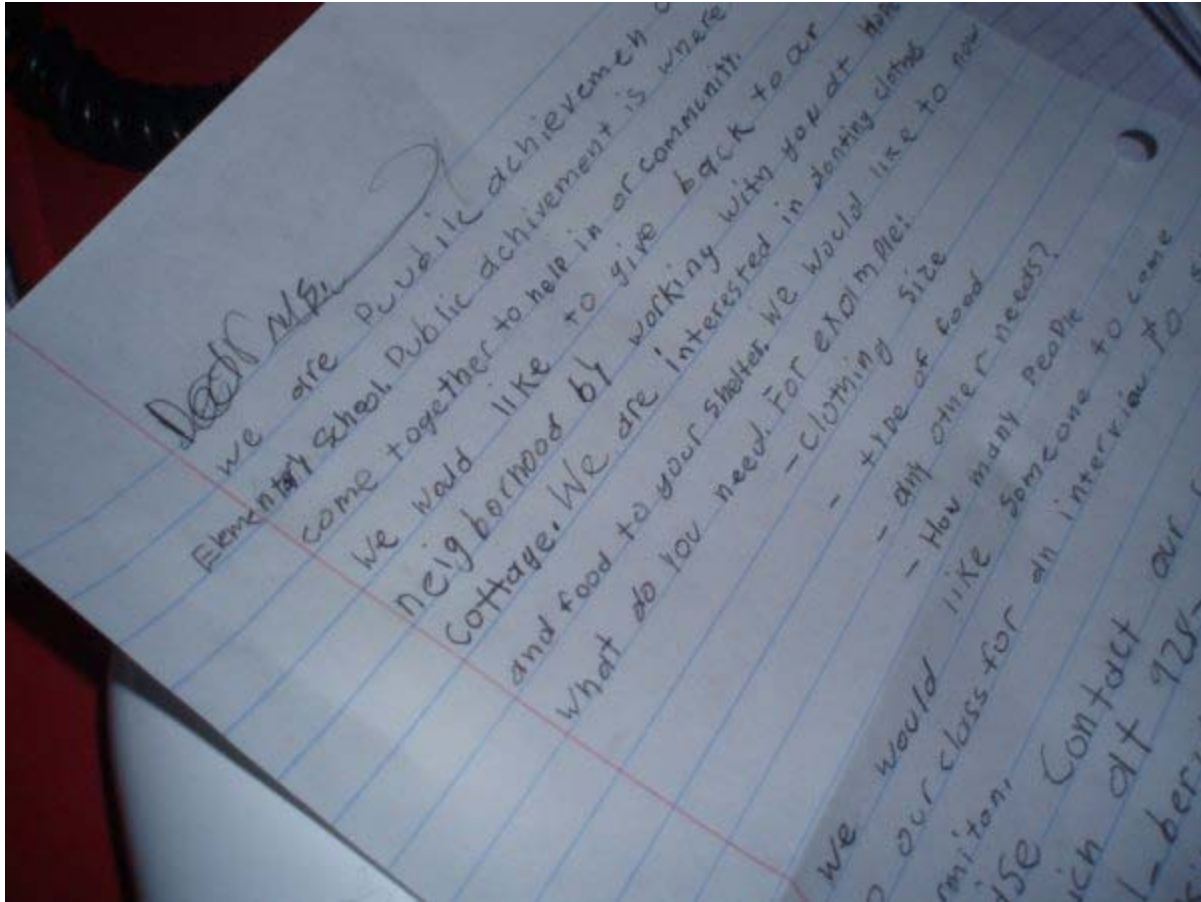 Dear Mr.
We are Puudilc achievemen
Elementary School. Public achivement is where
come together to help in or community.
We would like to give back to our
neigborhood by working with you at Hope
Cottage. We are interested in donting cloting
and food to your shelter. We would like to now
what do you need. For exolmple:
- clothing size
- type of food
- any other needs?
- How many people
We would like someone to come
our class for an interview to
Contact our
at 928-